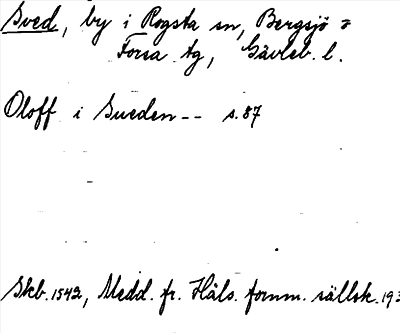 Sved, by i Rogsta sn, Bergsjö o
Forsa tg, Gävleb. l.
Oloff i Sueden-- s. 87
Skb. 1542, Medd. fr. Häls. fornm. sällsk. 193